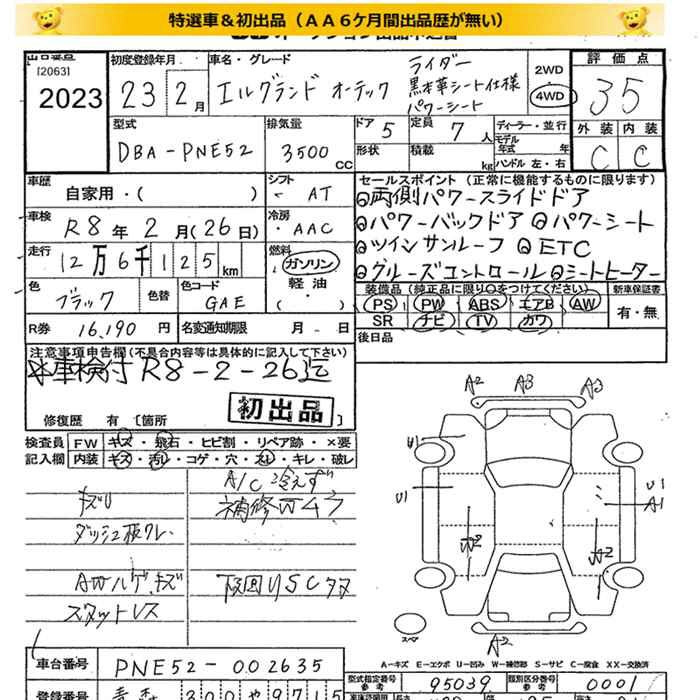 特選車＆初出品（ＡＡ６ケ月間出品歴が無い）
出品番号
[2063]
2023
初度登録年月
23 2月
車名・グレード
エルグランド オーテック
ライダー
黒本革シート仕様
パワーシート
2WD
4WD
評価点
35
外装 内装
C C
型式
DBA-PNE52
排気量
3500 CC
ドア 5
形状
定員 7人
積載 kg
ディーラー・並行
モデル年式 年
ハンドル 左・右
車歴
自家用・( )
シフト
AT
車検
R8年 2月(26日)
冷房
AAC
走行
12万6千125km
燃料
ガソリン
軽油
( )
色
ブラック
色替
色コード
GAE
R券 16,190円
名変通知期限 月 日
セールスポイント（正常に機能するものに限ります）
◎両側パワースライドドア
◎パワーバックドア ◎パワーシート
◎ツインサンルーフ ◎ETC
◎クルーズコントロール ◎シートヒーター
装備品（純正品に限り○をつけてください） 新車保証書
PS PW ABS エアB AW
SR ナビ TV カワ
有・無
後日品
注意事項申告欄(不具合内容等は具体的に記入して下さい)
車検付 R8-2-26迄
初出品
修復歴 有 〔箇所
検査員 FW キズ・飛石・ヒビ割・リペア跡・×要
記入欄 内装 キズ・汚レ・コゲ・穴・スレ・キレ・破レ
A/C冷えず
補修
ダッシュ板
AW キズ
スタットレス
下回りSC
A2 A3 A3
U1
U1
W2
U1
A1
A2
A2
スペア
A－キズ E－エクボ U－凹み W－補修跡 S－サビ C－腐食 XX－交換済
車台番号
PNE52-002635
型式指定番号
参考
95039
類別区分番号
参考
0001
登録番号
300 や 9715